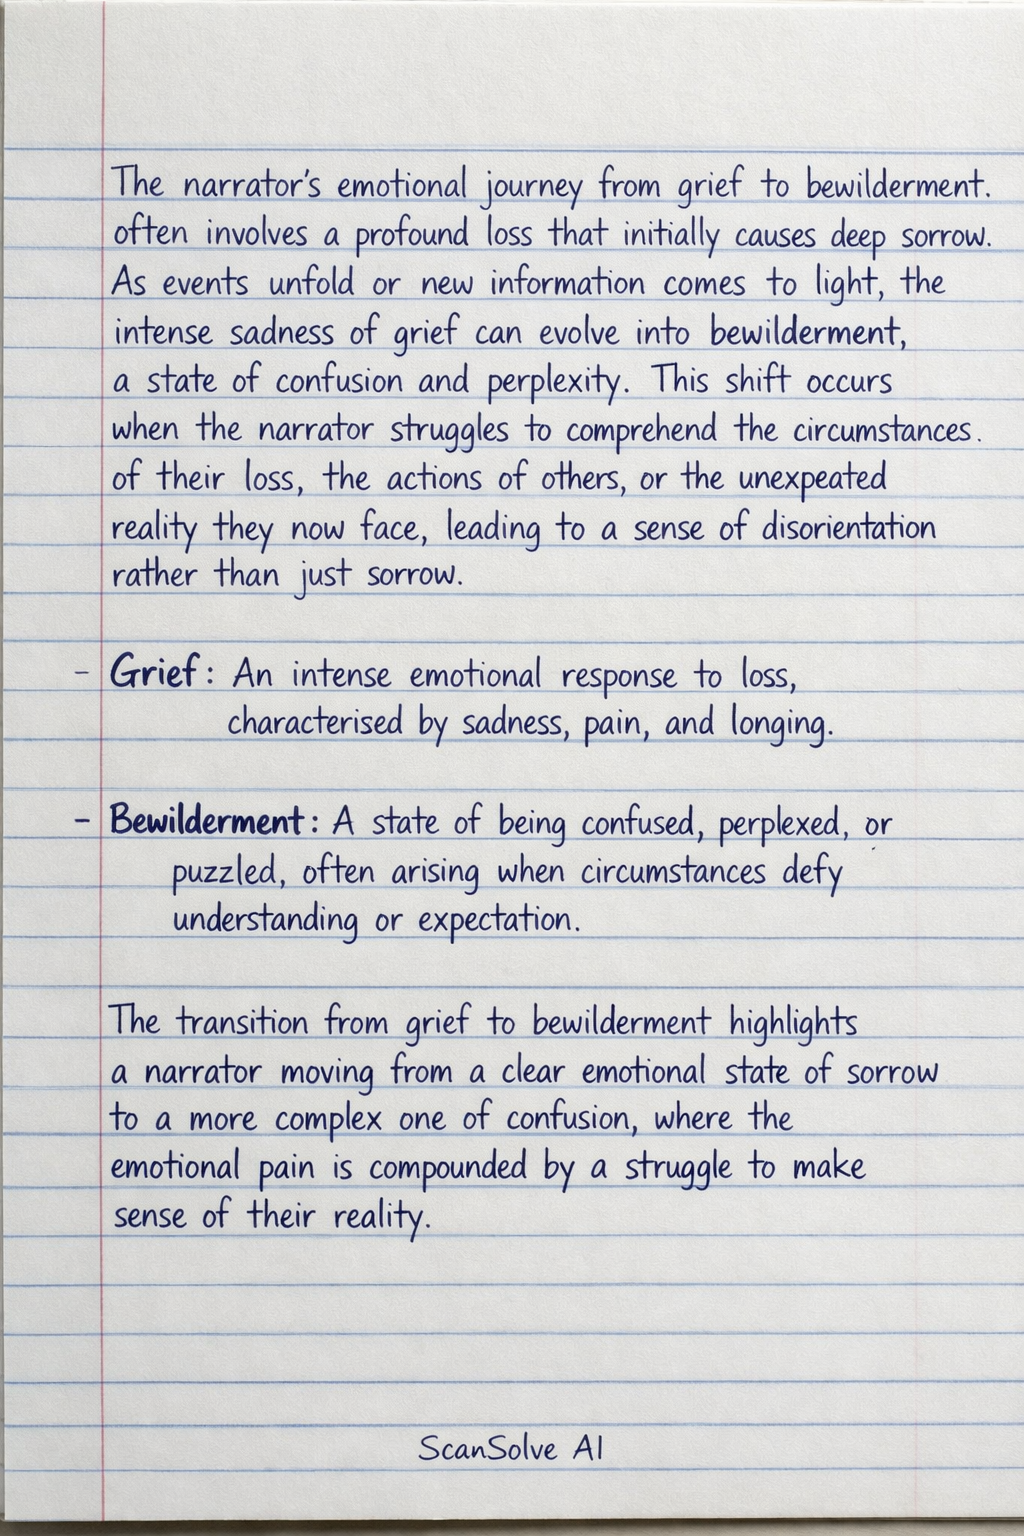 The narrator's emotional journey from grief to bewilderment.
often involves a profound loss that initially causes deep sorrow.
As events unfold or new information comes to light, the
intense sadness of grief can evolve into bewilderment,
a state of confusion and perplexity. This shift occurs
when the narrator struggles to comprehend the circumstances.
of their loss, the actions of others, or the unexpeated
reality they now face, leading to a sense of disorientation
rather than just sorrow.
- Grief: An intense emotional response to loss,
characterised by sadness, pain, and longing.
- Bewilderment: A state of being confused, perplexed, or
puzzled, often arising when circumstances defy
understanding or expectation.
The transition from grief to bewilderment highlights
a narrator moving from a clear emotional state of sorrow
to a more complex one of confusion, where the
emotional pain is compounded by a struggle to make
sense of their reality.
ScanSolve AI